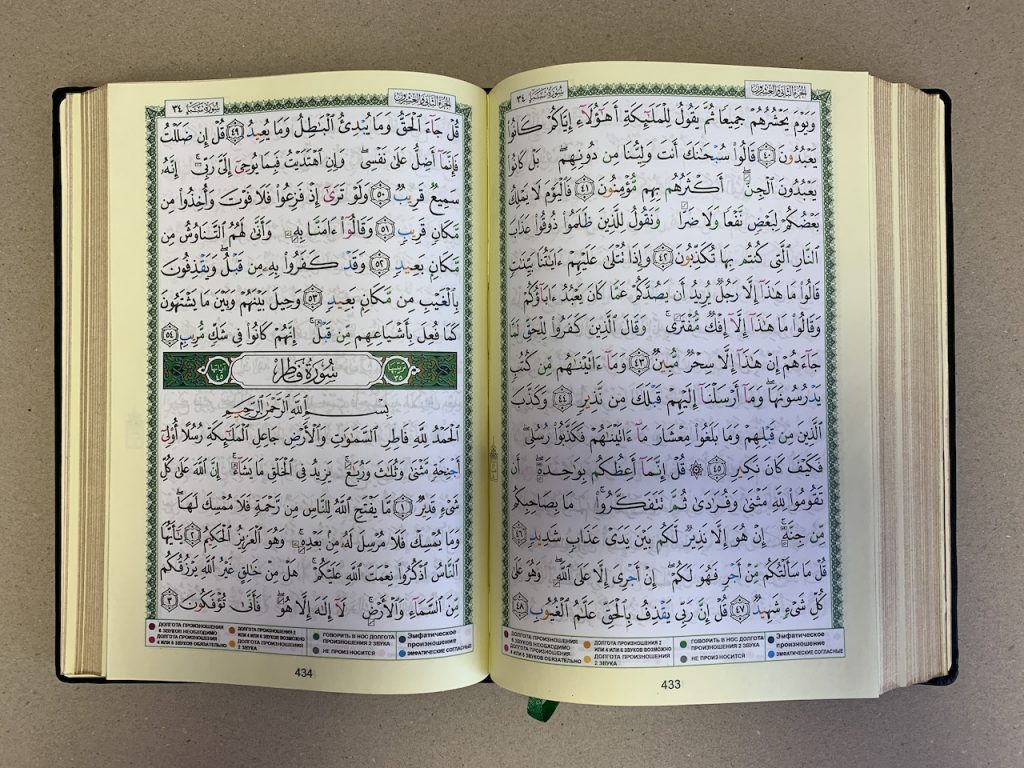 الجزء الثاني والعشرون
سورة سبأ ٣٤
وَيَوْمَ يَحْشُرُهُمْ جَمِيعًا ثُمَّ يَقُولُ لِلْمَلَـٰٓئِكَةِ أَهَـٰٓؤُلَآءِ إِيَّاكُمْ كَانُوا۟
يَعْبُدُونَ ٤٠ قَالُوا۟ سُبْحَـٰنَكَ أَنتَ وَلِيُّنَا مِن دُونِهِم ۖ بَلْ كَانُوا۟
يَعْبُدُونَ ٱلْجِنَّ ۖ أَكْثَرُهُم بِهِم مُّؤْمِنُونَ ٤١ فَٱلْيَوْمَ لَا يَمْلِكُ
بَعْضُكُمْ لِبَعْضٍ نَّفْعًا وَلَا ضَرًّا وَنَقُولُ لِلَّذِينَ ظَلَمُوا۟ ذُوقُوا۟ عَذَابَ
ٱلنَّارِ ٱلَّتِى كُنتُم بِهَا تُكَذِّبُونَ ٤٢ وَإِذَا تُتْلَىٰ عَلَيْهِمْ ءَايَـٰتُنَا بَيِّنَـٰتٍ
قَالُوا۟ مَا هَـٰذَآ إِلَّا رَجُلٌ يُرِيدُ أَن يَصُدَّكُمْ عَمَّا كَانَ يَعْبُدُ ءَابَآؤُكُمْ
وَقَالُوا۟ مَا هَـٰذَآ إِلَّآ إِفْكٌ مُّفْتَرًى ۚ وَقَالَ ٱلَّذِينَ كَفَرُوا۟ لِلْحَقِّ لَمَّا
جَآءَهُمْ إِنْ هَـٰذَآ إِلَّا سِحْرٌ مُّبِينٌ ٤٣ وَمَآ ءَاتَيْنَـٰهُم مِّن كُتُبٍ
يَدْرُسُونَهَا ۖ وَمَآ أَرْسَلْنَآ إِلَيْهِمْ قَبْلَكَ مِن نَّذِيرٍ ٤٤ وَكَذَّبَ
ٱلَّذِينَ مِن قَبْلِهِمْ وَمَا بَلَغُوا۟ مِعْشَارَ مَآ ءَاتَيْنَـٰهُمْ فَكَذَّبُوا۟ رُسُلِى ۖ
فَكَيْفَ كَانَ نَكِيرِ ٤٥ ۞ قُلْ إِنَّمَآ أَعِظُكُم بِوَٰحِدَةٍ ۖ أَن
تَقُومُوا۟ لِلَّهِ مَثْنَىٰ وَفُرَٰدَىٰ ثُمَّ تَتَفَكَّرُوا۟ ۚ مَا بِصَاحِبِكُم
مِّن جِنَّةٍ ۚ إِنْ هُوَ إِلَّا نَذِيرٌ لَّكُم بَيْنَ يَدَىْ عَذَابٍ شَدِيدٍ ٤٦
قُلْ مَا سَأَلْتُكُم مِّنْ أَجْرٍ فَهُوَ لَكُمْ ۖ إِنْ أَجْرِىَ إِلَّا عَلَى ٱللَّهِ ۖ وَهُوَ عَلَىٰ
كُلِّ شَىْءٍ شَهِيدٌ ٤٧ قُلْ إِنَّ رَبِّى يَقْذِفُ بِٱلْحَقِّ عَلَّـٰمُ ٱلْغُيُوبِ ٤٨
ДОЛГОТА ПРОИЗНОШЕНИЯ 6 ЗВУКОВ НЕОБХОДИМО
ДОЛГОТА ПРОИЗНОШЕНИЯ 4 ИЛИ 5 ЗВУКОВ ОБЯЗАТЕЛЬНО
ДОЛГОТА ПРОИЗНОШЕНИЯ 2 ИЛИ 4 ИЛИ 6 ЗВУКОВ ВОЗМОЖНО
ДОЛГОТА ПРОИЗНОШЕНИЯ 2 ЗВУКА
ГОВОРИТЬ В НОС ДОЛГОТА ПРОИЗНОШЕНИЯ 2 ЗВУКА
НЕ ПРОИЗНОСИТСЯ
Эмфатическое произношение
ЭМФАТИЧЕСКИЕ СОГЛАСНЫЕ
433
الجزء الثاني والعشرون
سورة سبأ ٣٤
قُلْ جَآءَ ٱلْحَقُّ وَمَا يُبْدِئُ ٱلْبَـٰطِلُ وَمَا يُعِيدُ ٤٩ قُلْ إِن ضَلَلْتُ
فَإِنَّمَآ أَضِلُّ عَلَىٰ نَفْسِى ۖ وَإِنِ ٱهْتَدَيْتُ فَبِمَا يُوحِىٓ إِلَىَّ رَبِّىٓ ۚ إِنَّهُۥ
سَمِيعٌ قَرِيبٌ ٥٠ وَلَوْ تَرَىٰٓ إِذْ فَزِعُوا۟ فَلَا فَوْتَ وَأُخِذُوا۟ مِن
مَّكَانٍ قَرِيبٍ ٥١ وَقَالُوٓا۟ ءَامَنَّا بِهِۦ وَأَنَّىٰ لَهُمُ ٱلتَّنَاوُشُ مِن
مَّكَانٍۭ بَعِيدٍ ٥٢ وَقَدْ كَفَرُوا۟ بِهِۦ مِن قَبْلُ ۖ وَيَقْذِفُونَ
بِٱلْغَيْبِ مِن مَّكَانٍۭ بَعِيدٍ ٥٣ وَحِيلَ بَيْنَهُمْ وَبَيْنَ مَا يَشْتَهُونَ
كَمَا فُعِلَ بِأَشْيَاعِهِم مِّن قَبْلُ ۚ إِنَّهُمْ كَانُوا۟ فِى شَكٍّ مُّرِيبٍۭ ٥٤
ترتيبها ٣٥ سُورَةُ فَاطِرٍ آياتها ٤٥
بِسْمِ ٱللَّهِ ٱلرَّحْمَـٰنِ ٱلرَّحِيمِ
ٱلْحَمْدُ لِلَّهِ فَاطِرِ ٱلسَّمَـٰوَٰتِ وَٱلْأَرْضِ جَاعِلِ ٱلْمَلَـٰٓئِكَةِ رُسُلًا أُو۟لِىٓ
أَجْنِحَةٍ مَّثْنَىٰ وَثُلَـٰثَ وَرُبَـٰعَ ۚ يَزِيدُ فِى ٱلْخَلْقِ مَا يَشَآءُ ۚ إِنَّ ٱللَّهَ عَلَىٰ كُلِّ
شَىْءٍ قَدِيرٌ ١ مَّا يَفْتَحِ ٱللَّهُ لِلنَّاسِ مِن رَّحْمَةٍ فَلَا مُمْسِكَ لَهَا ۖ
وَمَا يُمْسِكْ فَلَا مُرْسِلَ لَهُۥ مِنۢ بَعْدِهِۦ ۚ وَهُوَ ٱلْعَزِيزُ ٱلْحَكِيمُ ٢ يَـٰٓأَيُّهَا
ٱلنَّاسُ ٱذْكُرُوا۟ نِعْمَتَ ٱللَّهِ عَلَيْكُمْ ۚ هَلْ مِنْ خَـٰلِقٍ غَيْرُ ٱللَّهِ يَرْزُقُكُم
مِّنَ ٱلسَّمَآءِ وَٱلْأَرْضِ ۚ لَآ إِلَـٰهَ إِلَّا هُوَ ۖ فَأَنَّىٰ تُؤْفَكُونَ ٣
ДОЛГОТА ПРОИЗНОШЕНИЯ 6 ЗВУКОВ НЕОБХОДИМО
ДОЛГОТА ПРОИЗНОШЕНИЯ 4 ИЛИ 5 ЗВУКОВ ОБЯЗАТЕЛЬНО
ДОЛГОТА ПРОИЗНОШЕНИЯ 2 ИЛИ 4 ИЛИ 6 ЗВУКОВ ВОЗМОЖНО
ДОЛГОТА ПРОИЗНОШЕНИЯ 2 ЗВУКА
ГОВОРИТЬ В НОС ДОЛГОТА ПРОИЗНОШЕНИЯ 2 ЗВУКА
НЕ ПРОИЗНОСИТСЯ
Эмфатическое произношение
ЭМФАТИЧЕСКИЕ СОГЛАСНЫЕ
434